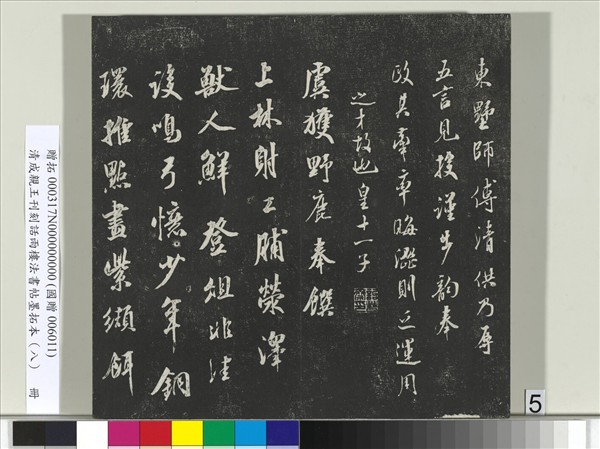 東墅師傅清供乃辱
五言見投謹步韵奉
政其牽率晦澀則之運用
之才故也皇十一子
虞獲野鹿奉饌
上林射工脯熒澤
獸人鮮登俎非佳
設鳴弓憶少年銅
環推點畫紫纈餌
5
贈拓 000317N000000000 (國贈 006011)
清成親王刊刻話雨樓法書帖墨拓本（八） 冊